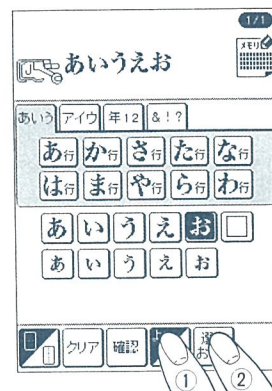 1/1
メモリ
あいうえお
あいう アイウ 年12 &!?
あ行 か行 さ行 た行 な行
は行 ま行 や行 ら行 わ行
あ い う え お
あ い う え お
クリア 確認
① ②